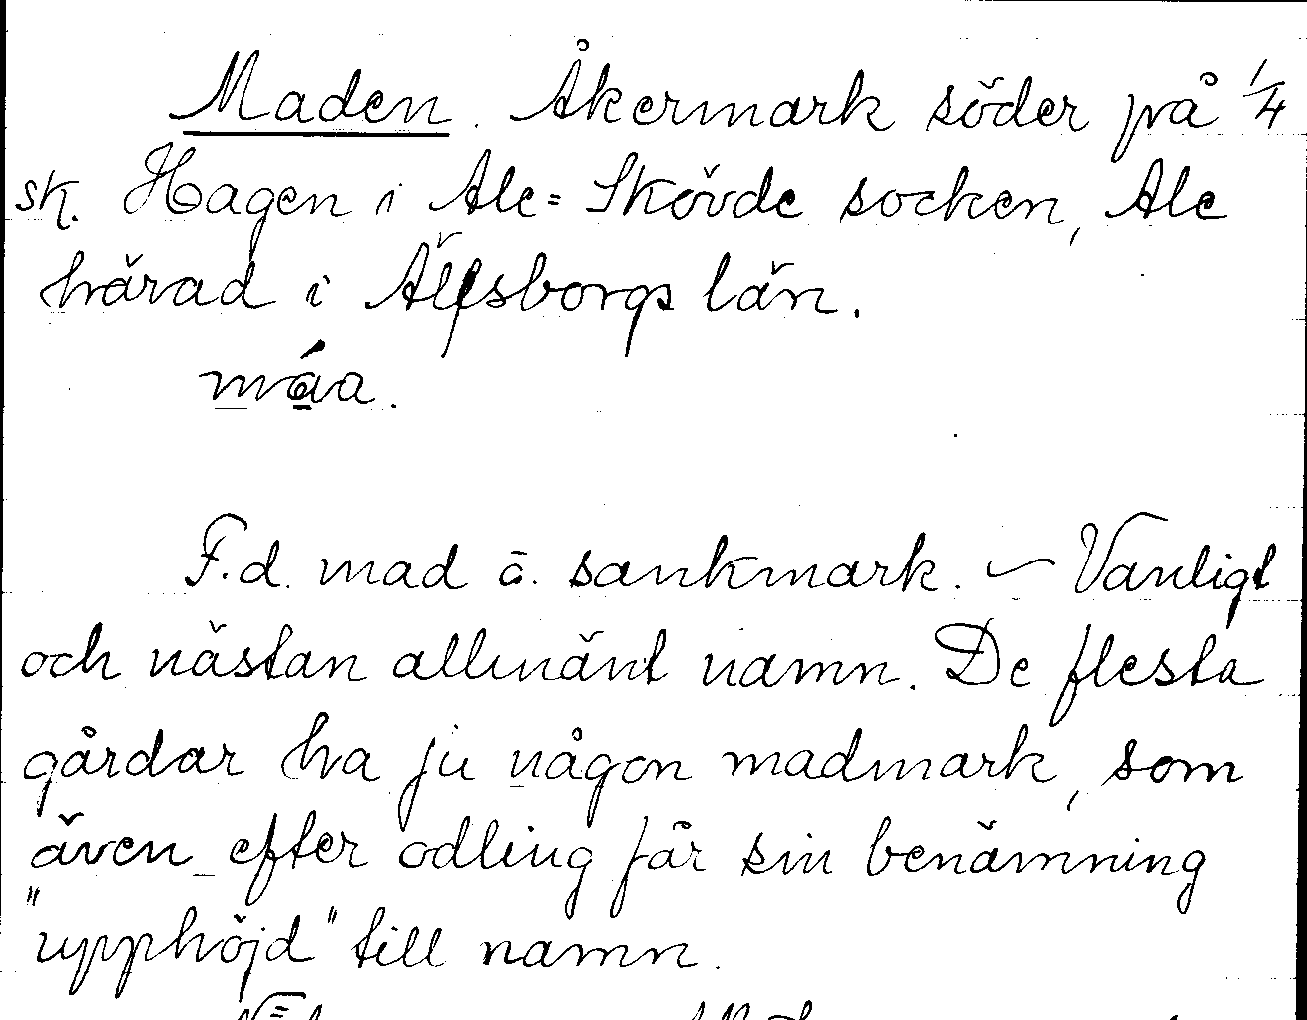 Maden. Åkermark söder på 1/4
sk. Hagen i Ale=Skövde socken, Ale
härad i Älfsborgs län.
máa.
F.d. mad ā. sankmark. – Vanligt
och nästan allmänt namn. De flesta
gårdar ha ju någon madmark, som
även efter odling får sin benämning
"upphöjd" till namn.